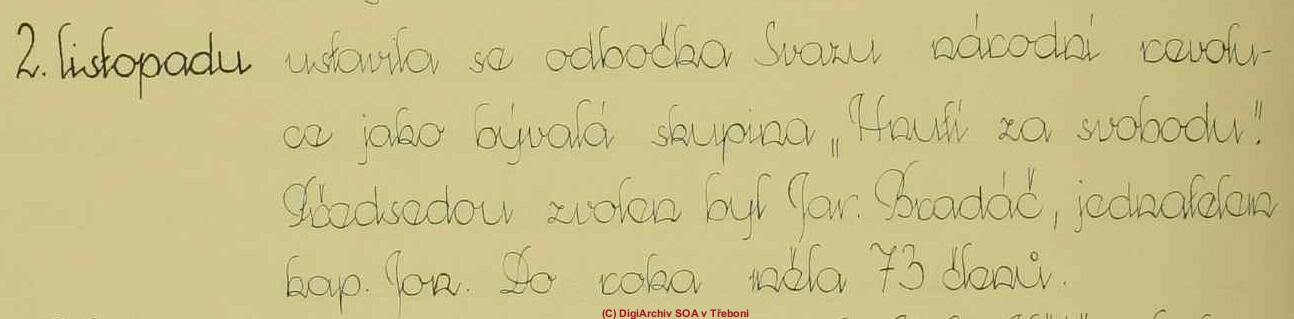 2. listopadu ustavila se odbočka Svazu národní revolu-
ce jako bývalá skupina „Hnutí za svobodu".
Předsedou zvolen byl Jar. Bradáč, jednatelem
kap. Jon. Do roka měla 73 členů.
(C) DigiArchiv SOA v Třeboni